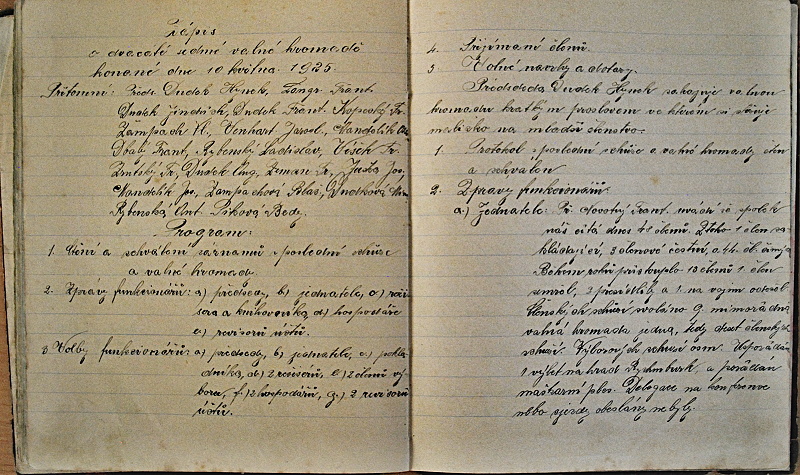 Zápis
o dvacáté sedmé valné hromadě
konané dne 10 května 1925.
Přítomni: Předs. Dudek Hynek, Frant.
Dudek Jindřich, Dudek Frant. Kopecký Fr.
Zámpach H., Venhart Jarosl., Mandelík
Frant, Rybenský Ladislav, Víšek Fr.
Fr, Dudek Aug, Zeman Fr, Justa Jos,
Mandelik Zámpachová Dudková
Rybenská Ant. Piková Bedř.
Program:
1. čtení a schválení záznamů z poslední schůze
a valné hromady.
2. Zprávy funkcionářů: a) předsedy, b) jednatele, c)
a knihovníka, d) hospodáře
e) revisorů účtů.
3. Volby funkcionářů: a) předsedy, b) jednatele, c) pokla
dníka, d) 2 e) 2 členů vý
boru, f.) 2 hospodářů, g.) 2 revisorů
účtů.
4. Přijímání členů.
5 Volné návrhy a dotazy.
Předseda Dudek Hynek zahajuje valnou
hromadu krátkým proslovem ve kterém si stěžuje
na mladší členstvo.
1. Protokol z poslední schůze a valné hromady čten
a schválen
2. Zprávy funkcionářů:
a) Jednatele: Př. Novotný Frant. uvádí že spolek
náš čítá dnes 48 členů. Z toho 1 člen za
kládající, 3 členové čestní, a 44 čl.
Během roku přistoupilo 13 členů 1 člen
zemřel, 3 a 1 na vojnu
Členských schůzí svoláno 9 mimořádná
valná hromada jedna, tedy deset členských
schůzí. Výborových schůzí osm. Uspořádán
1 výlet na hrad Rychmburk, a pořádán
maškarní ples. Delegace na konference
nebo sjezdy obeslány nebyly.